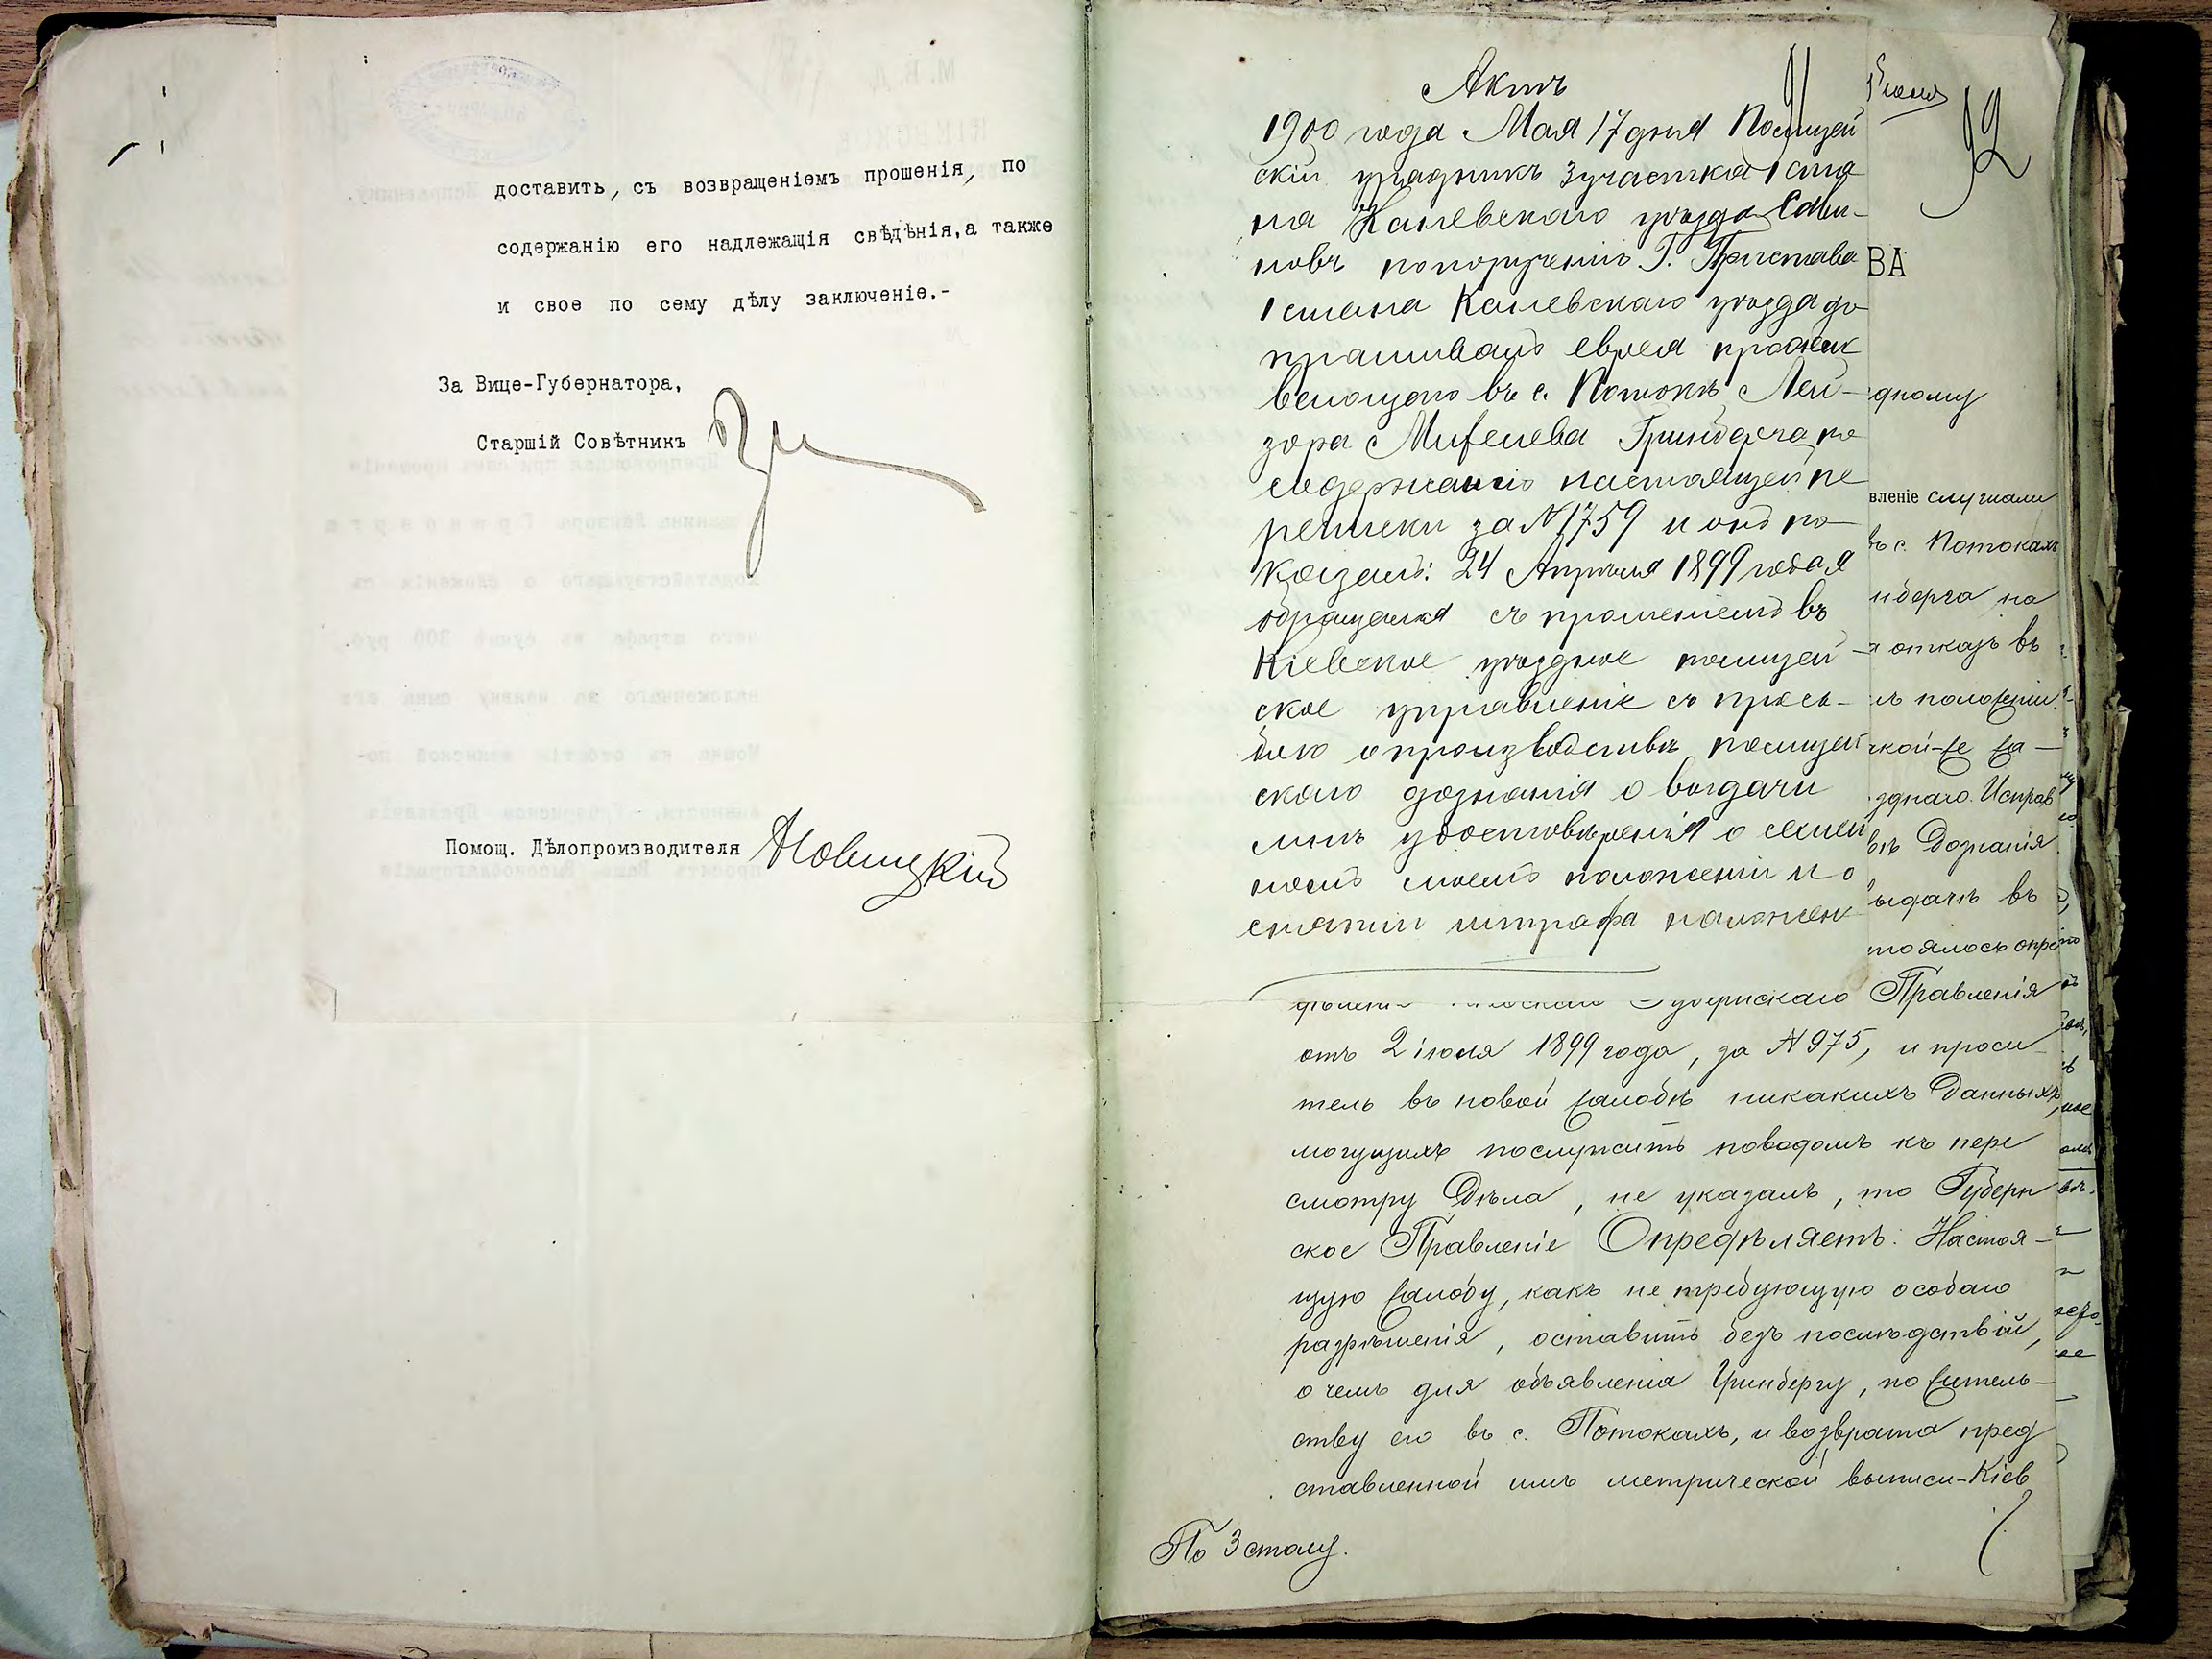 доставить, съ возвращеніемъ прошенія, по
содержанію его надлежащія свѣдѣнія, а также
и свое по сему дѣлу заключеніе.-
За Вице-Губернатора,
Старшій Совѣтникъ
Помощ. Дѣлопроизводителя Новицкій
Актъ
91
1900 года Мая 17 дня Полицей
скій урядникъ 3 участка 1 ста
на Каневскаго уѣзда
новъ по порученію Г. Пристава
1 стана Каневскаго уѣзда до
прашивалъ еврея прожи
вающаго въ с. Потокъ Лей-
зора Гринберга по
содержанію настоящей пе
реписки за №1759 и онъ по-
казалъ: 24 Апрѣля 1899 года я
обращался съ прошеніемъ въ
Кіевское уѣздное полицей-
ское управленіе съ прось-
бою о производствѣ полицей
скаго дознанія о выдачи
мнѣ удостовѣренія о семей
номъ моемъ положеніи и о
снятіи штрафа наложен
92
ВА
дному
вленіе слушали
въ с. Потокахъ
нберга на
отказъ въ
положеніи
кой-же жа-
зднаго Исправ
Дознанія
ыдачѣ въ
тоялось опре
дѣлені Губернскаго Правленія
отъ 2 іюля 1899 года, за №975, и проси-
тель въ новой жалобѣ никакихъ данныхъ,
могущихъ послужить поводомъ къ пере
смотру дѣла, не указалъ, то Губерн
ское Правленіе Опредѣляетъ: Настоя-
щую жалобу, какъ не требующую особаго
разрѣшенія, оставить безъ послѣдствій,
о чемъ для объявленія Гринбергу, по житель-
ству его въ с. Потокахъ, и возврата пред
ставленной имъ метрической выписи-Кіев
По 3 столу.